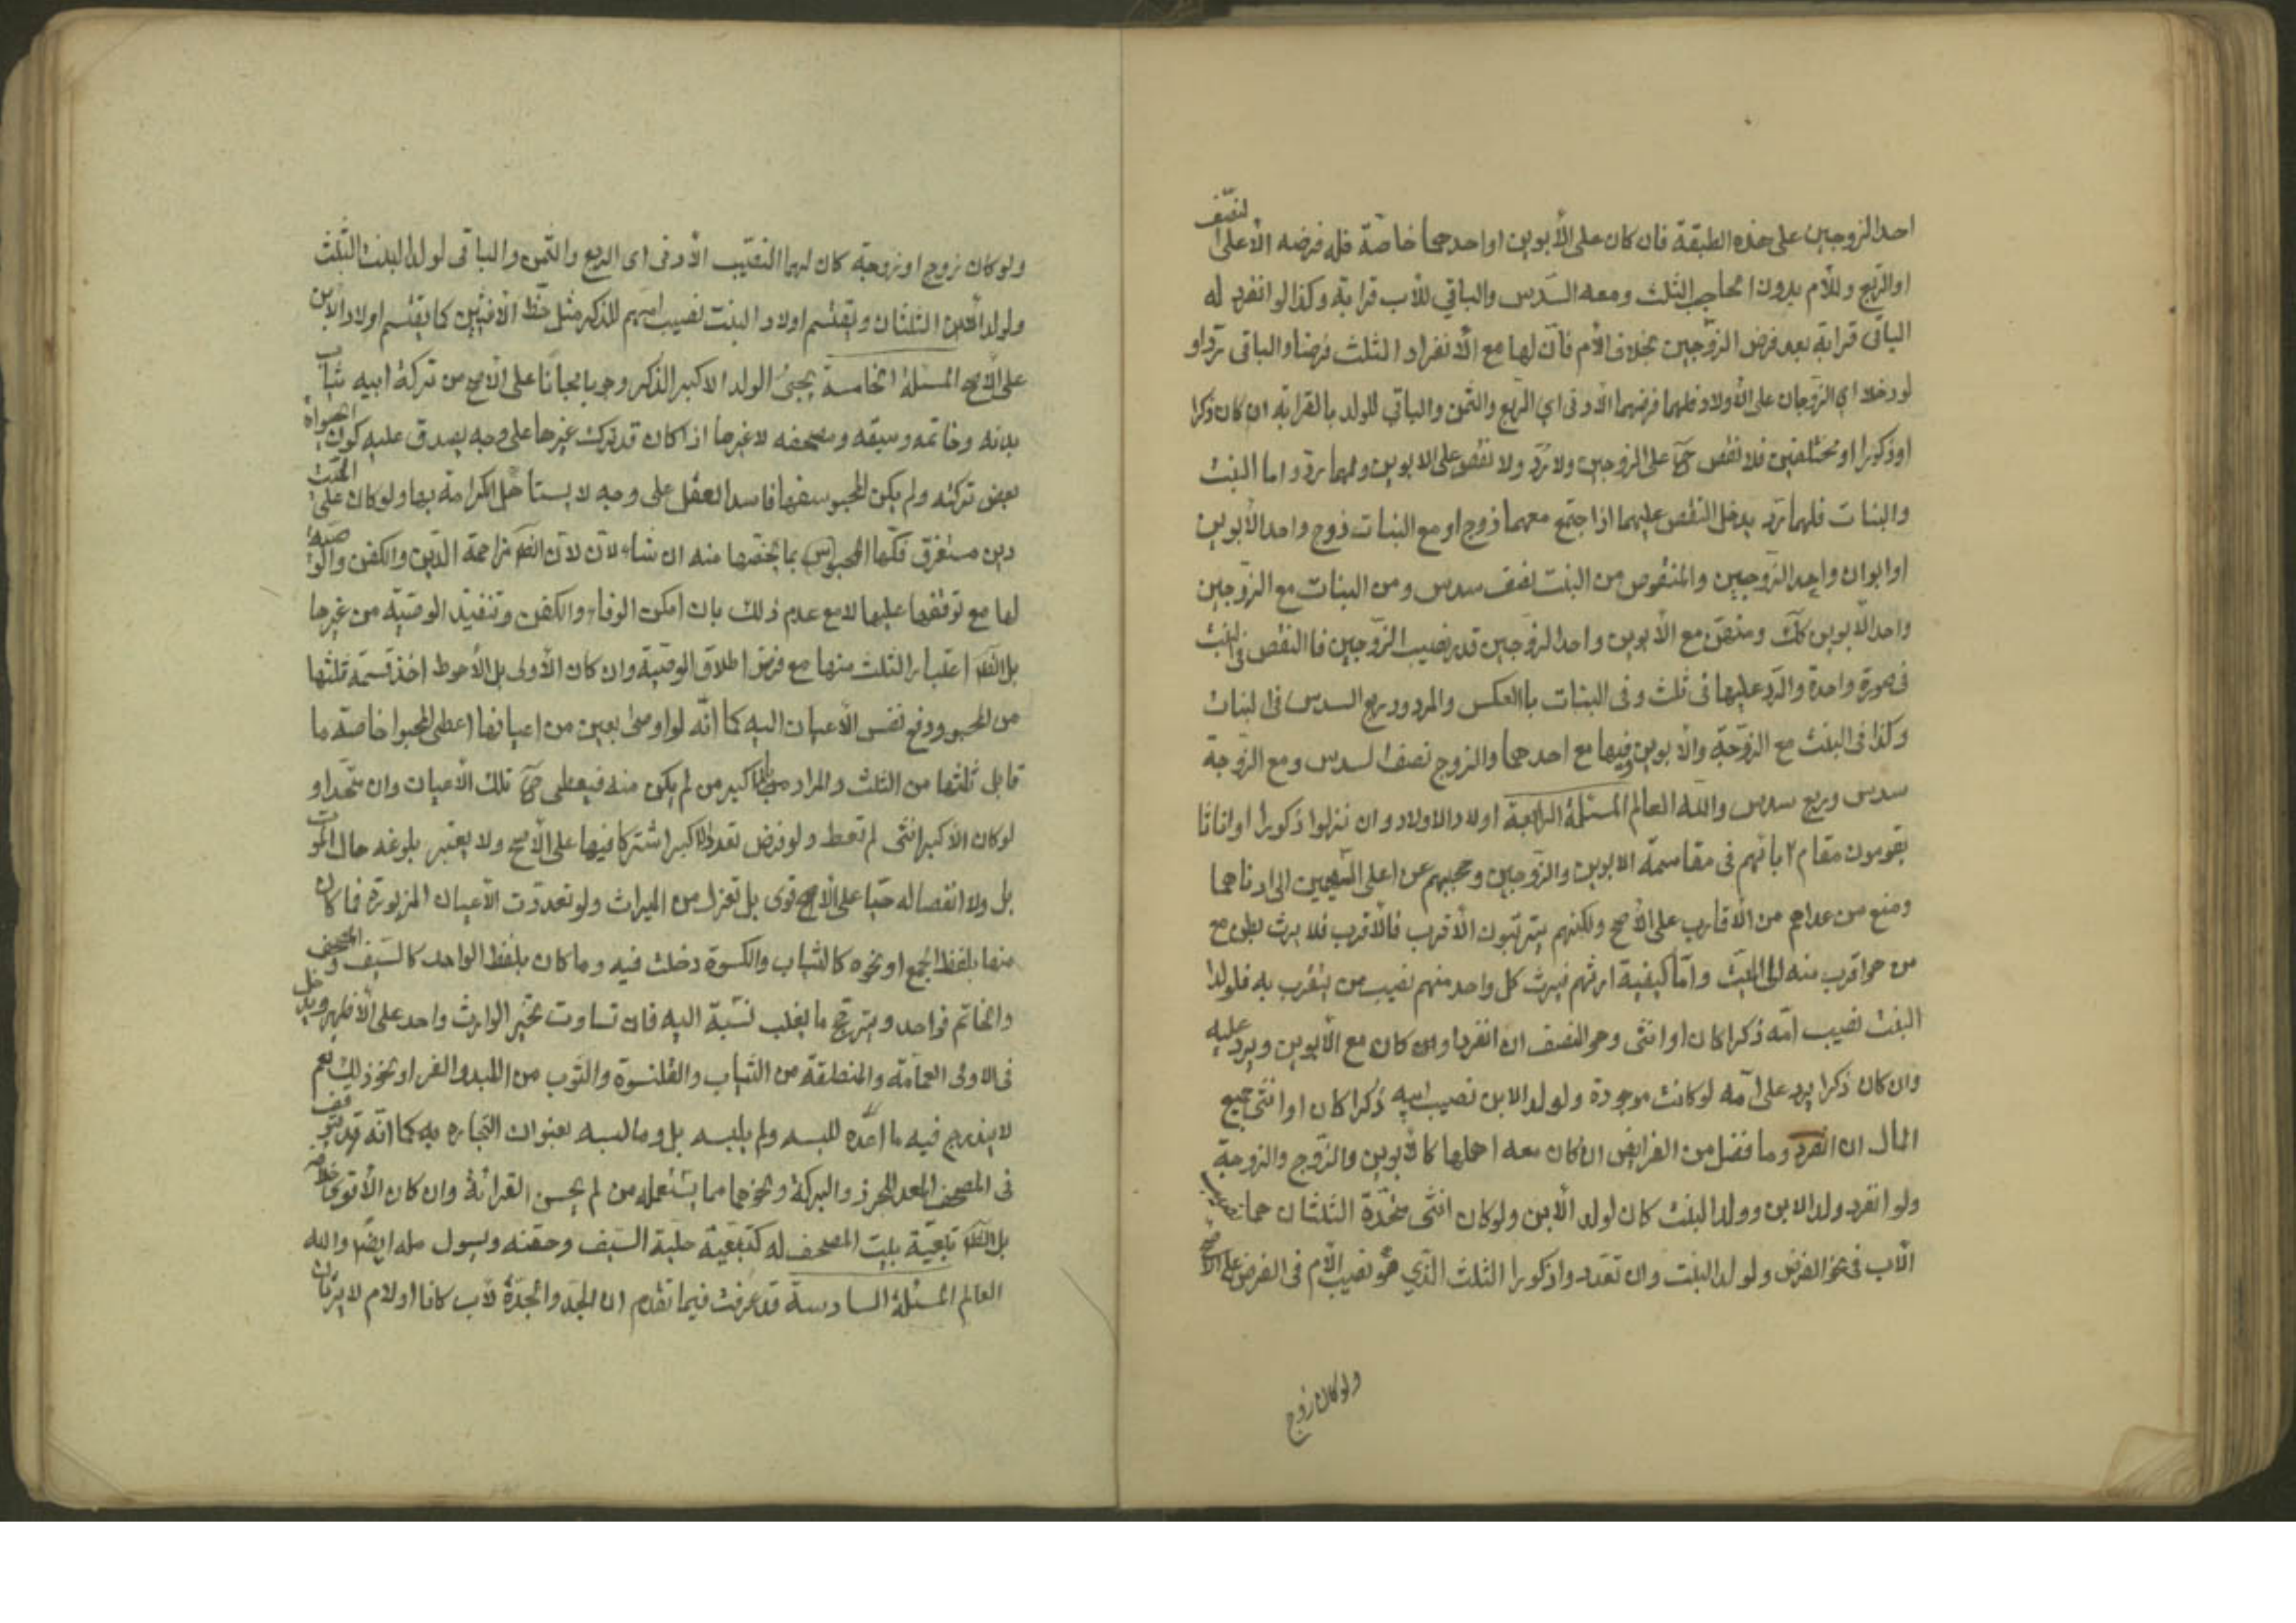 احد الزوجين على هذه الطبقة فان كان على الأبوين او احدهما خاصّة فله فرضه الاعلى النّصف
او الرّبع وللأم بدون الحاجب الثلث ومعه السّدس والباقي للأب قرابة وكذا لو انفرد له
الباقى قرابة بعد فرض الزّوجين بخلاف الأم فانّ لها مع الأنفراد الثلث فرضا والباقى ردّا و
لو دخلا اي الزّوجان على الأولاد فلهما فرضهما الأدنى اي الربع والثمن والباقي للولد بالقرابة ان كان ذكرا
او ذكورا او مختلفين فلا نقص ح على الزوجين ولا ردّ ولا نقص على الابوين ولا لهما ردّ واما البنت
والبنات فلهما ردّ يدخل النقص عليهما اذا اجتمع معهما زوج او مع البنات زوج واحد الأبوين
او ابوان واحد الزوجين والمنقوص من البنت نصف سدس ومن البنات مع الزوجين
واحد الأبوين كك ومع الأبوين واحد الزوجين قدر نصيب الزوجين فالنقص فى البنت
فى صورة واحدة والرّد عليها فى ثلث وفى البنات بالعكس والمردود ربع السدس فى البنات
وكذا فى البنت مع الزوجة والأبوين وفيها مع احدهما والزوج نصف السدس ومع الزوجة
سدس وربع سدس والله العالم المسئلة الرابعة اولاد الاولاد وان نزلوا ذكورا او اناثا
يقومون مقام ابائهم فى مقاسمة الابوين والزوجين وحجبهم عن اعلى السهمين الى ادناهما
ومنع من عداهم من الأقارب على الأصح ولكنهم يترتبون الأقرب فالأقرب فلا يرث بطن مع
من هو اقرب منه الى الميّت وامّا كيفية ارثهم فيرث كل واحد منهم نصيب من يتقرب به فلولد
البنت نصيب امّه ذكرا كان او انثى وهو النصف ان انفرد او كان مع الأبوين ويردّ عليه
وان كان ذكرا يرد على امّه لو كانت موجودة ولولد الابن نصيب ابيه ذكرا كان او انثى جميع
المال ان انفرد وما فضل من الفرايض ان كان معه اهلها كالأبوين والزوج والزوجة
ولو انفرد ولد الابن وولد البنت كان لولد الأبن ولو كان انثى متّحدة الثلثان هما نصيب
الأب فى نحو الفرض ولولد البنت وان تعدد واذكورا الثلث الذي هو نصيب الأم فى الفرض على الأصح
ولو كان زوج
ولو كان زوج او زوجة كان لهما النصيب الأدنى اى الربع والثمن والباقى لولد البنت الثلث
ولولد الأبن الثلثان ويقتسم اولاد البنت نصيب امهم للذكر مثل حظ الانثيين كما يقتسم اولاد الأبن
على الأصح المسئلة الخامسة يحبىٰ الولد الاكبر الذكر وجوبا مجانا على الأصح من تركة ابيه ثياب
بدنه وخاتمه وسيفه ومصحفه لا غيرها اذا كان قد ترك غيرها على وجه يصدق عليه كون الحبوة
بعض تركته ولم يكن المحبو سفيها فاسد العقل على وجه لا يستأهل الكرامة بها ولو كان على الميّت
دين مستغرق فكّها المحبو بما يخصها منه ان شاء لأن الظّ مزاحمة الدّين والكفن والوصيّة
لها مع توقفها عليها لا مع عدم ذلك بان امكن الوفاء والكفن وتنفيذ الوصيّة من غيرها
بل الظّ اعتبار الثلث منها مع فرض اطلاق الوصّية وان كان الأولى بل الأحوط اخذ قسمة ثلثها
من المحبو ودفع نفس الأعيان اليه كما انّه لو اوصى بعين من اعيانها اعطى المحبو خاصّة ما
قابل ثلثها من الثلث والمراد بالأكبر من لم يكن منه فيعطى ح تلك الأعيان وان متّحدا و
لو كان الأكبر انثى لم تعط ولو فرض تعدد الأكبر اشتركا فيها على الأصح ولا يعتبر بلوغه حال الموت
بل ولا انفصاله حيّا على الأصح قوى بل تعزل من الميراث ولو تعددت الأعيان المزبورة فما كان
منها بلفظ الجمع او نحوه كالثياب والكسوة دخلت فيه وما كان بلفظ الواحد كالسّيف والمصحف
والخاتم فواحد ويترجّح ما يغلب نسّبة اليه فان تساوت تخيّر الوارث واحد على الأظهر ويدخل
فى الاولى العمامة والمنطقة من الثياب والقلنسوة والثّوب من اللبد والفر او نحو ذلك نعم
لا يندرج فيه ما اعدّه للبسه ولم يلبسه بل وما لبسه بعنوان التجارة به كما انّه قد يتوقف
فى المصحف المعد للحرز والبركة ونحوهما مما يستعمله من لم يحسن القرائة وان كان الأقوى خلافه
بل الظّ تبعيّة بيت المصحف له كتبعيّة حلية السّيف وجفنه وسيول مله ايضّم والله
العالم المسئلة السادسة قد عرفت فيما تقدم ان الجدّ والجدّة لأب كانا او لام لا يرثان